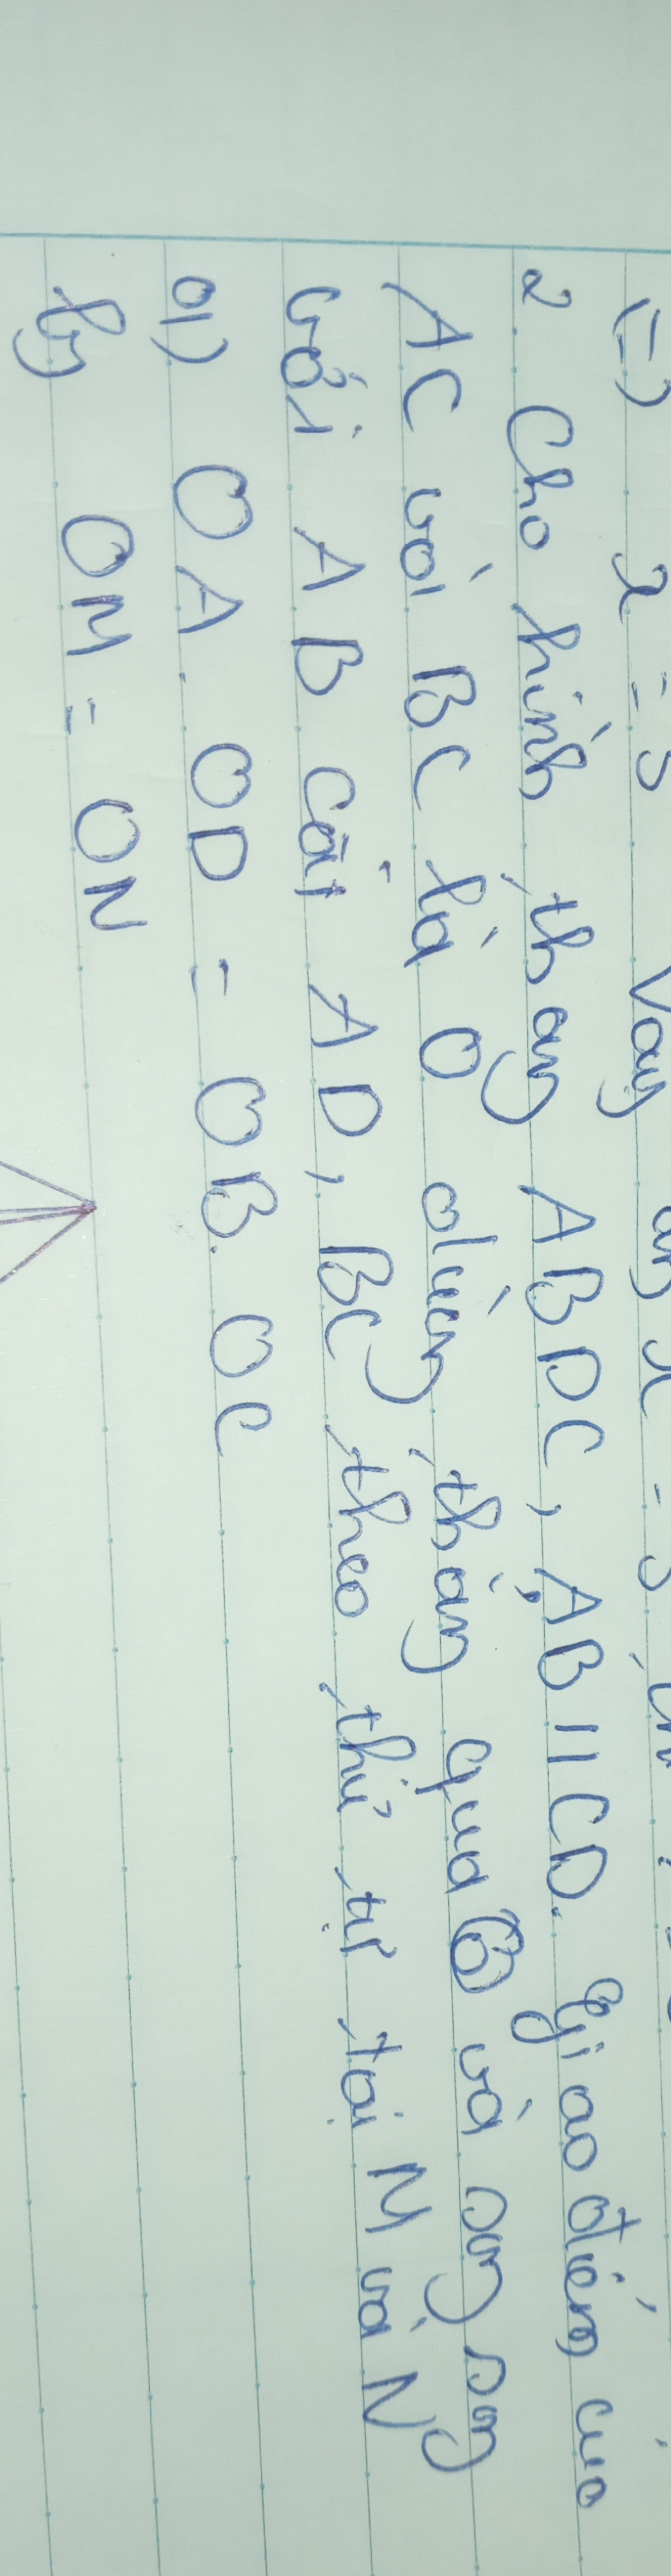 (=) x = 5 Vậy
2. Cho hình thang ABDC, AB // CD. Giao điểm của
AC với BC là O đường thẳng qua O và song song
với AB cắt AD, BC theo thứ tự tại M và N
a) OA. OD = OB. OC
b) OM = ON